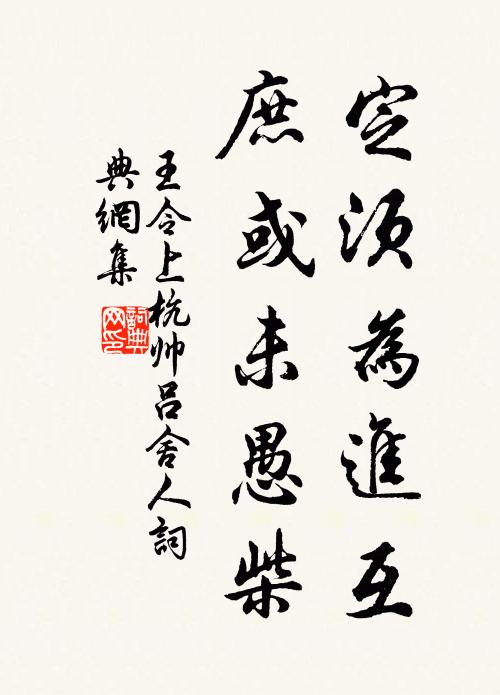 定須為進互
庶或未愚柴
王令上杭帅吕舍人詞
典網集
詞典
网印